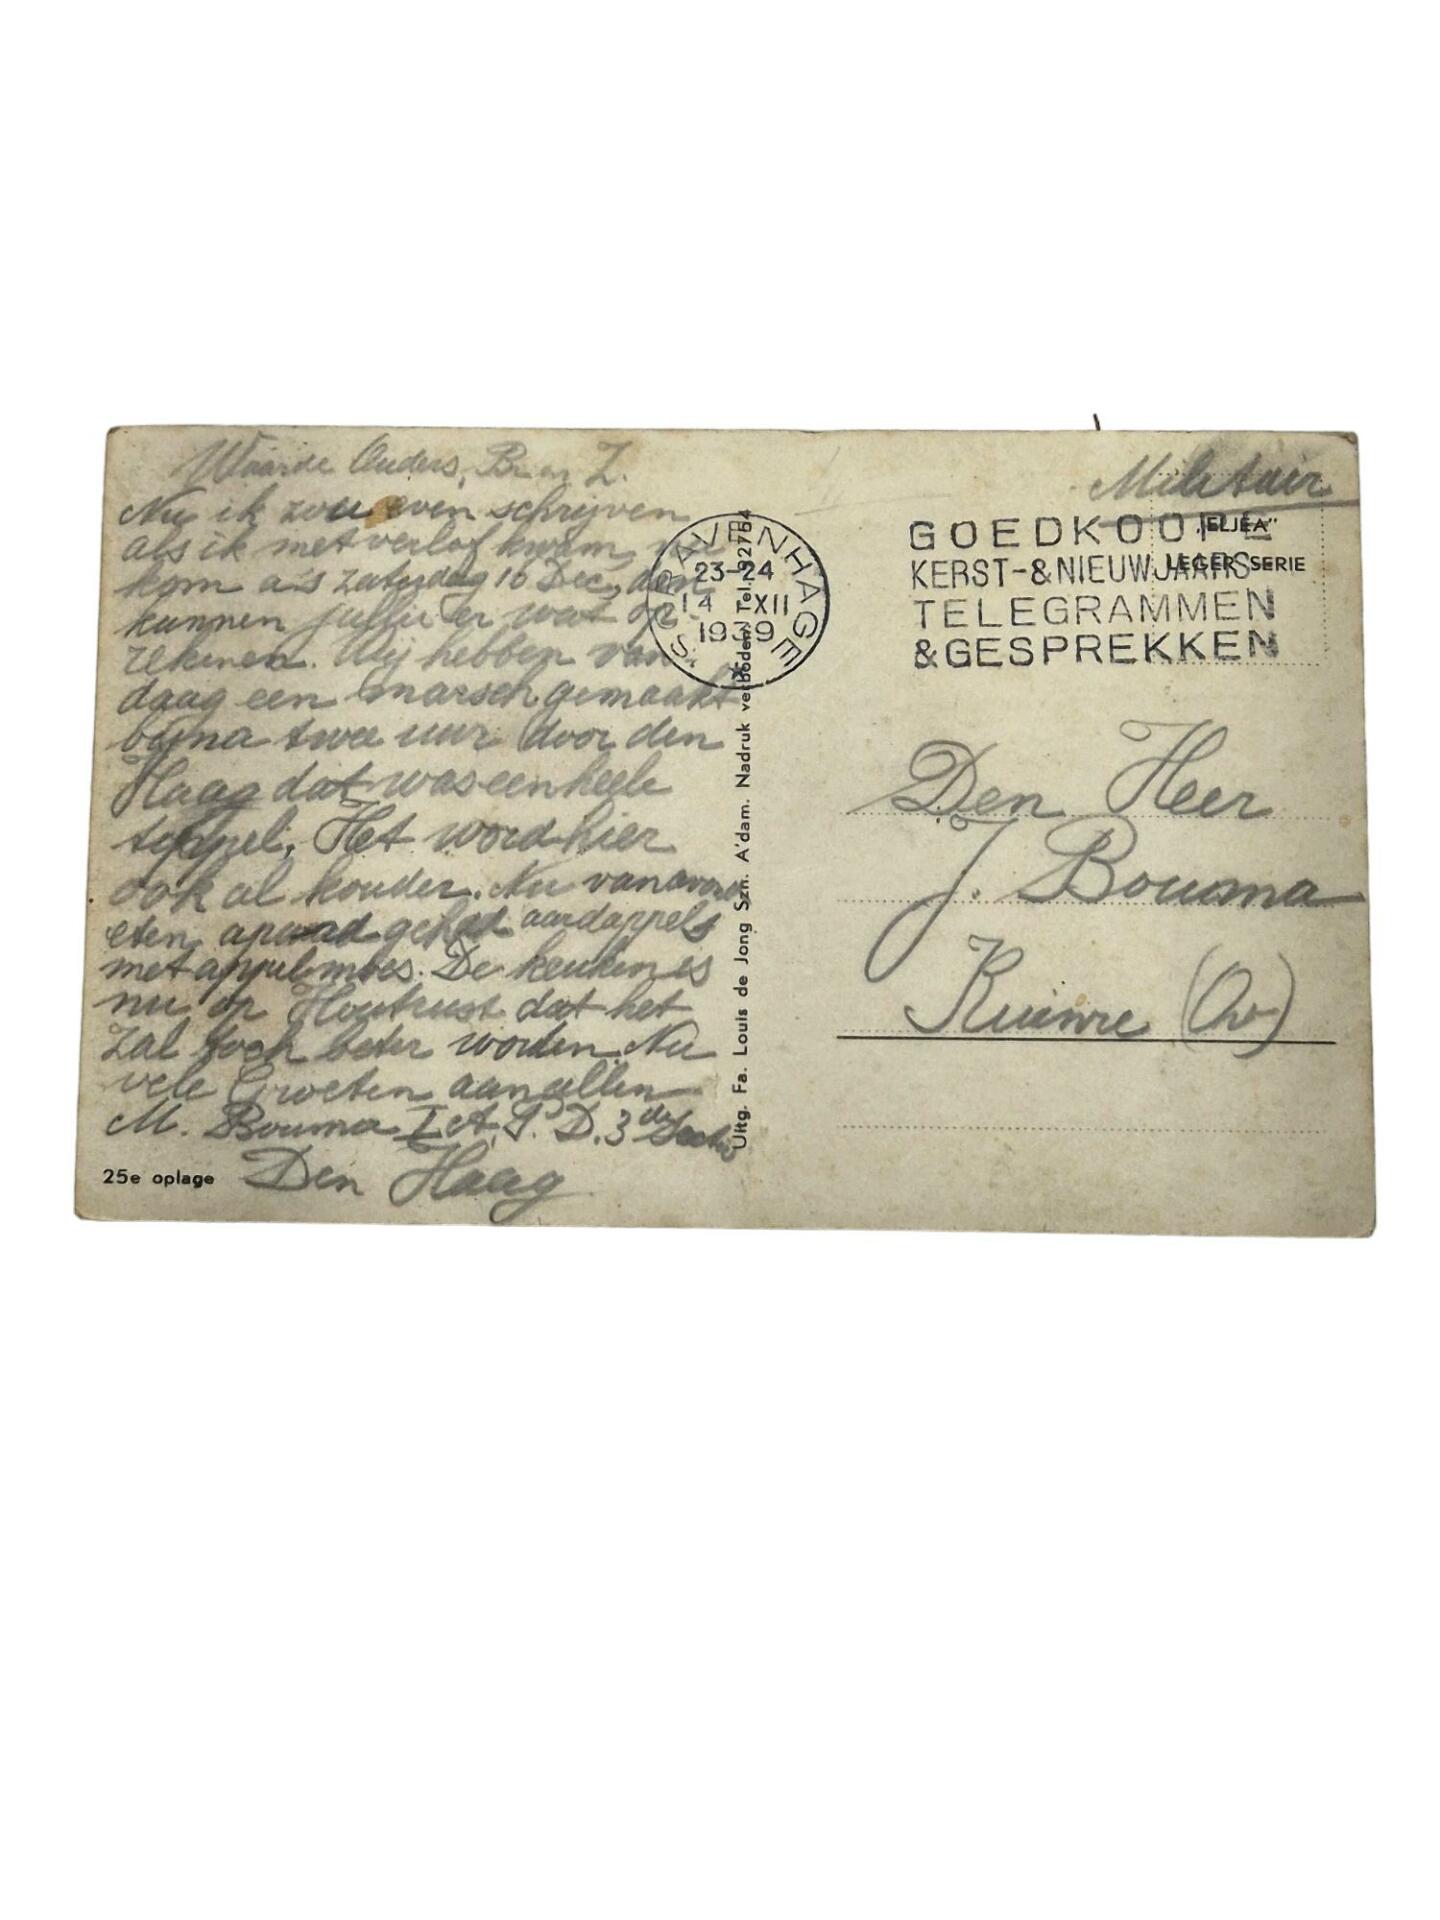 Waarde Ouders, Br en Z.
Nu ik zou even schrijven
als ik met verlof kwam, nu
kom a.s zaterdag 16 Dec, dan
kunnen jullie er wat op
rekenen. Wij hebben van
daag een marsch gemaakt
bijna twee uur door den
Haag dat was een heele
tippel. Het word hier
ook al kouder. Nu vanavond
eten gehad aardappels
met appelmoes. De keuken is
nu op Houtrust dat het
zal toch beter worden. Nu
vele Groeten aan allen
M. Bouma I A. P. D. 3de Sectie
Den Haag
25e oplage
Uitg. Fa. Louis de Jong Szn. A'dam. Nadruk verboden Tel. 92764
'S GRAVENHAGE
23-24
14 XII
1939
Militair
GOEDKOOPE
KERST-& NIEUWJAARS
TELEGRAMMEN
& GESPREKKEN
„ELJEA"
LEGER SERIE
Den Heer
J. Bouma
Kuinre (Ov)